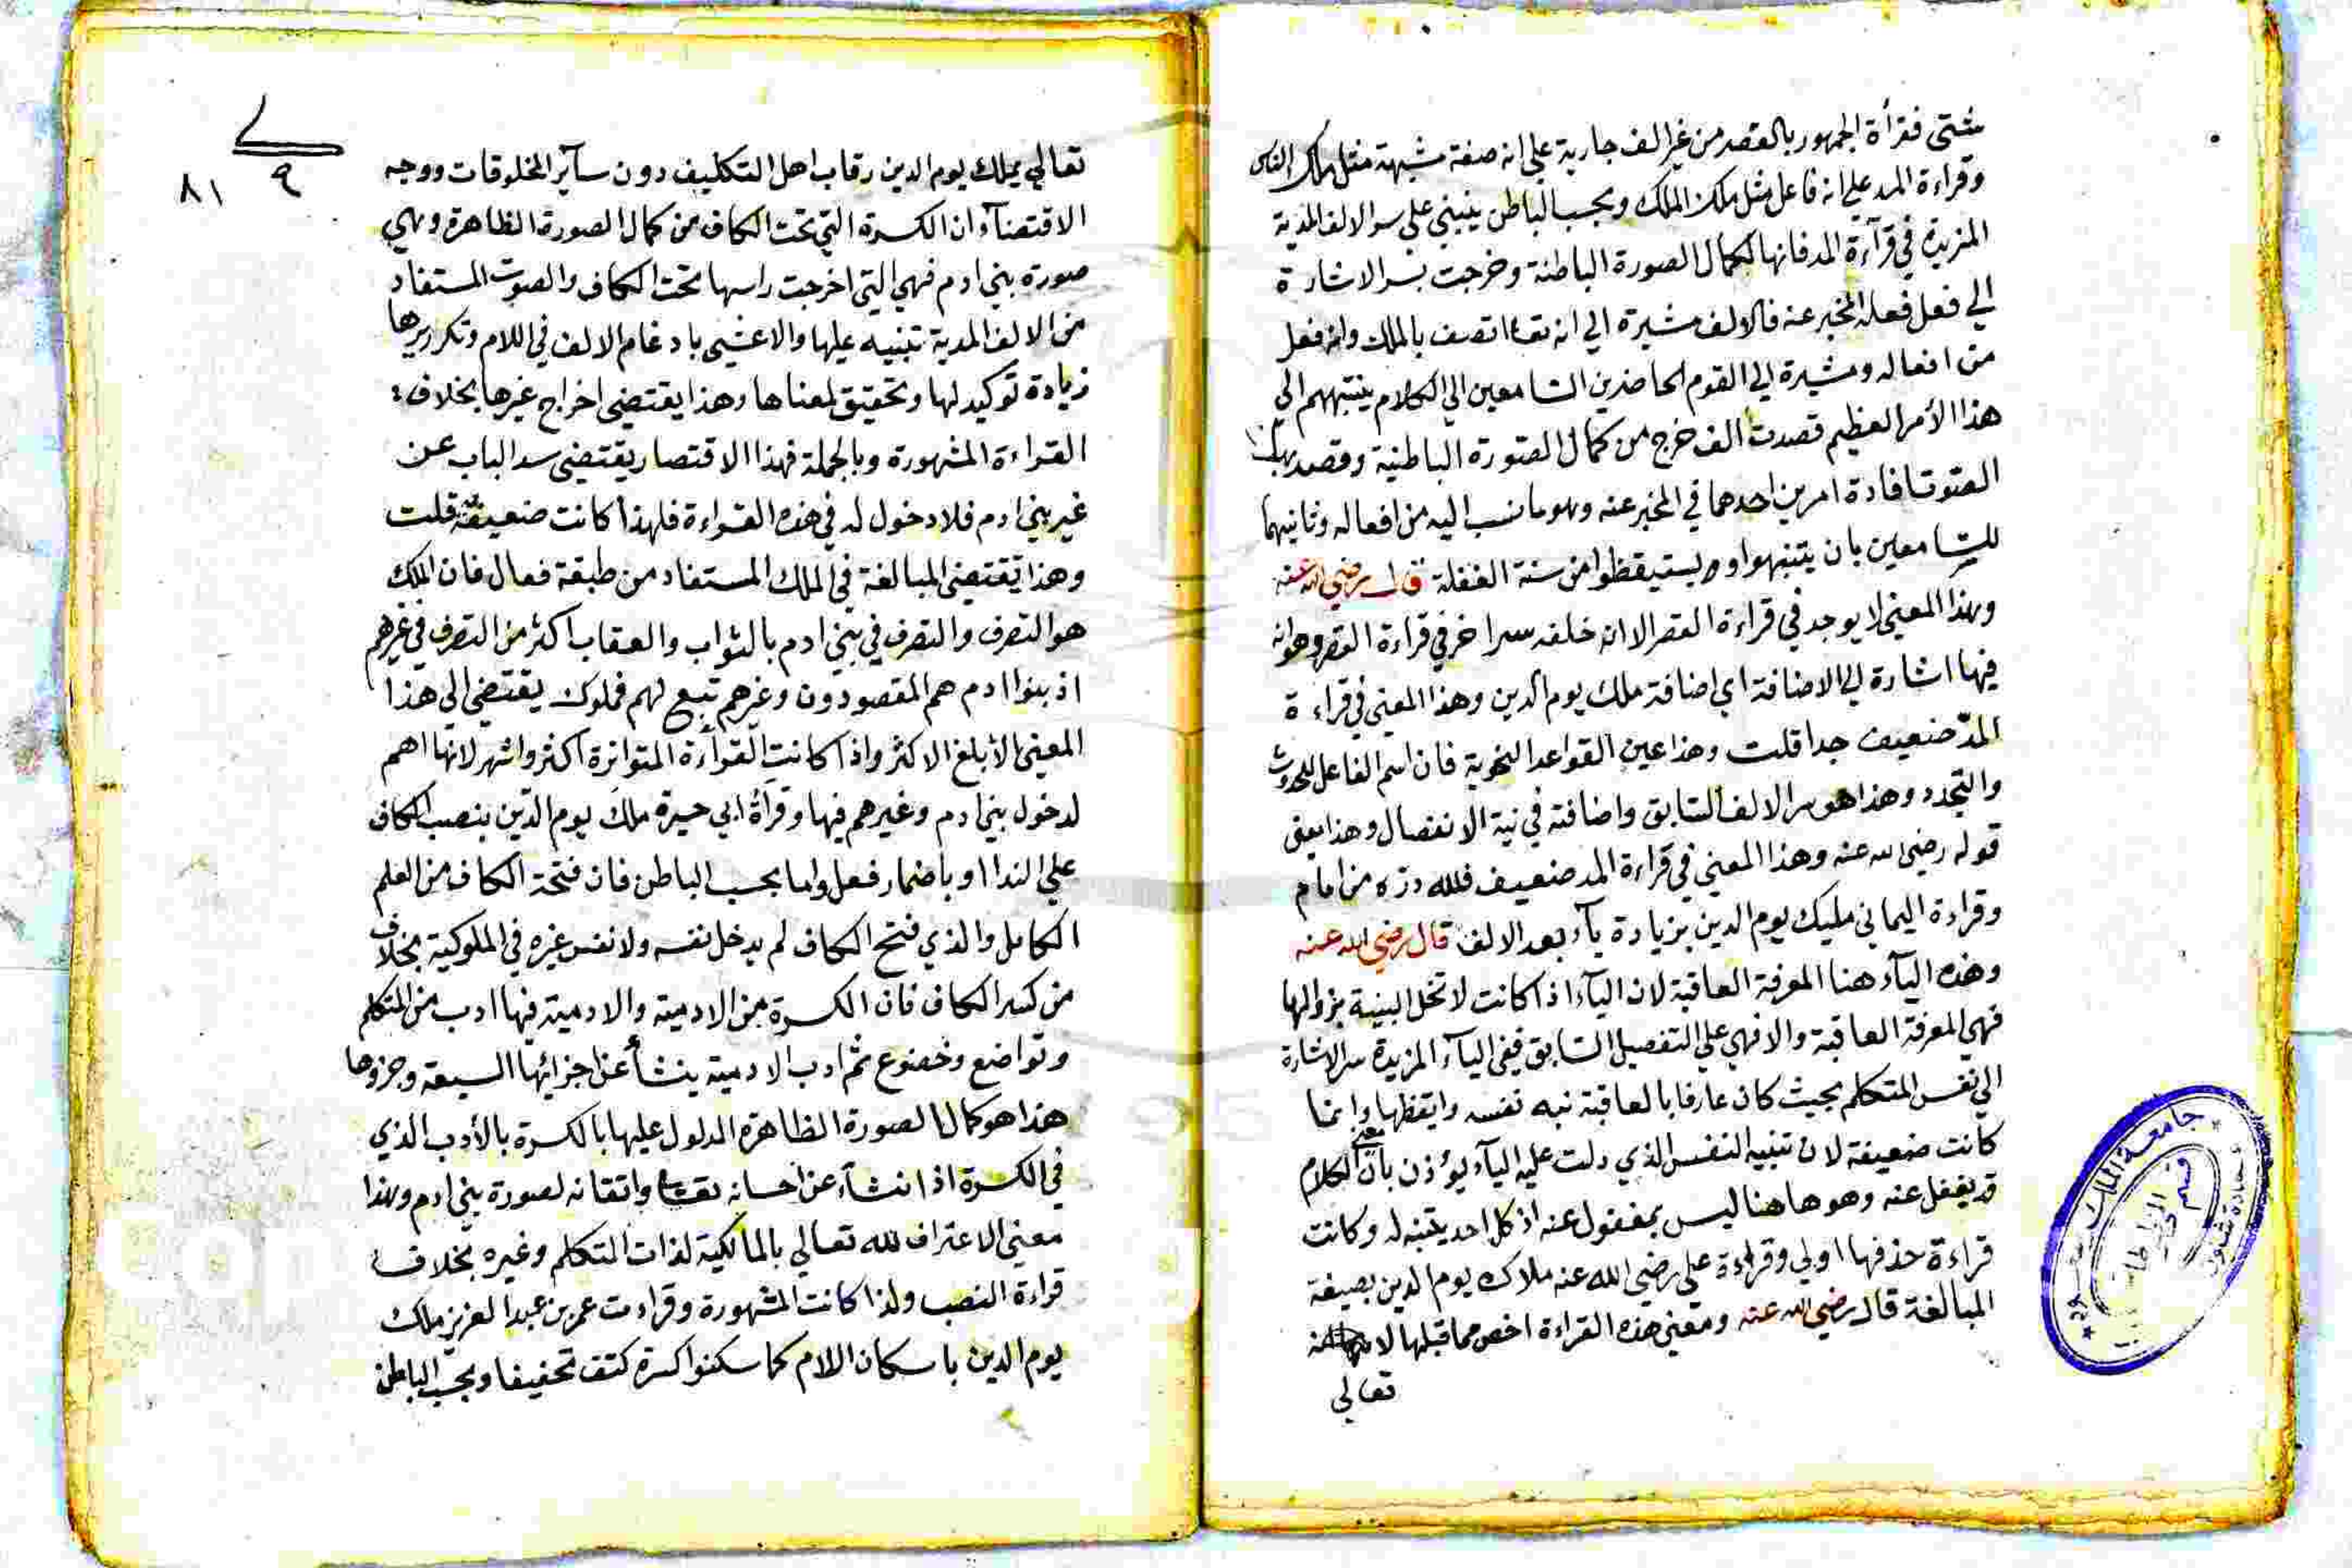 شتى فقرأة الجمهور بالقصر من غير الف جارية علي انه صفة مشبهة مثل ملك الناس
وقراءة المد علي انه فاعل مثل ملك الملك وبحسب الباطن ينبني علي سر الالف المدية
المزيدة في قرآءة المد فانها لكمال الصورة الباطنة وخرجت بسر الاشارة
الي فعل فعله المخبر عنه فالالف مشيرة الي انه تعا اتصف بالملك وانه فعل
من افعاله ومشيرة الي القوم الحاضرين السامعين الي الكلام ينتبههم الي
هذا الأمر العظيم قصدت الف خرج من كمال الصورة الباطنية وقصد بهذا
الصوت افادة امرين احدهما في المخبر عنه وهو ما نسب اليه من افعاله وثانيهما
للسامعين بان يتنبهوا ويستيقظوا من سنة الغفلة قال رضي الله عنه
وهذا المعني لا يوجد في قراءة القصر الا ان خلفه سرا خر في قراءة القصر وهو انه
فيها اشارة الي الاضافة اي اضافة ملك يوم الدين وهذا المعني في قراءة
المدّ ضعيف جدا قلت وهذا عين القواعد النحوية فان اسم الفاعل للحدوث
والتجدد وهذا هو سر الالف السابق واضافته في نية الانفصال وهذا معنى
قوله رضي الله عنه وهذا المعني في قراءة المد ضعيف فلله دره من امام
وقراءة اليماني مليك يوم الدين بزيادة يآء بعد الالف قال رضي الله عنه
وهذه اليآء هنا المعرفة العاقبة لان اليآء اذا كانت لا تخل البنية بزوالها
فهي المعرفة العاقبة والا فهي علي التفصيل السابق ففي اليآء المزيدة سر الاشارة
الي نفس المتكلم بحيث كان عارفا بالعاقبة نبه نفسه وايقظها وانما
كانت ضعيفة لان تنبيه النفس الذي دلت عليه اليآء يؤذن بان معنى الكلام
قد يغفل عنه وهو هاهنا ليس بمغفول عنه اذ كل احد يتنبه له وكانت
قراءة حذفها اولي وقراءة علي رضي الله عنه ملاك يوم الدين بصيغة
المبالغة قال رضي الله عنه ومعني هذه القراءة اخص مما قبلها لانه
تعالي
٩
٨١
تعالي يملك يوم الدين رقاب اهل التكليف دون سآير المخلوقات ووجه
الاقتضآء ان الكسرة التي تحت الكاف من كمال الصورة الظاهرة وهي
صورة بني ادم فهي التي اخرجت راسها تحت الكاف والصوت المستفاد
من الالف المدية تنبيه عليها والاعشى بادغام الالف في اللام وتكريرها
زيادة توكيد لها وتحقيق لمعناها وهذا يقتضي اخراج غيرها بخلاف
القراءة المشهورة وبالجملة فهذا الاقتصار يقتضي سد الباب عن
غير بني ادم فلا دخول له في هذه القراءة فلهذا كانت ضعيفة قلت
وهذا يقتضي المبالغة في الملك المستفاد من طبقة فعال فان الملك
هو التصرف والتصرف في بني ادم بالثواب والعقاب اكثر من التصرف في غيرهم
اذ بنوا ادم هم المقصودون وغيرهم تبع لهم فملوك يقتضي الي هذا
المعني الأبلغ الاكثر واذا كانت القرآءة المتواترة اكثر واشهر لانها اهم
لدخول بني ادم وغيرهم فيها وقرأة ابي حيرة ملك يوم الدين بنصب الكاف
علي الندا او باضمار فعل واما بحسب الباطن فان فتحة الكاف من العلم
الكامل والذي فتح الكاف لم يدخل نفسه ولا نفس غيره في الملوكية بخلاف
من كسر الكاف فان الكسرة من الادمية والادمية فيها ادب من المتكلم
وتواضع وخضوع ثم ادب الادمية ينشأ عن اجزائها السبعة وجزوها
هذا هو كمال الصورة الظاهرة المدلول عليها بالكسرة بالأدب الذي
في الكسرة اذا نشآء عن احسانه تعالى واتقانه لصورة بني ادم وهذا
معني الاعتراف لله تعالي بالمالكية لذات المتكلم وغيره بخلاف
قراءة النصب ولذا كانت المشهورة وقراءت عمر بن عبد العزيز ملك
يوم الدين باسكان اللام كما سكنوا كسرة كتف تخفيفا وبحسب الباطن